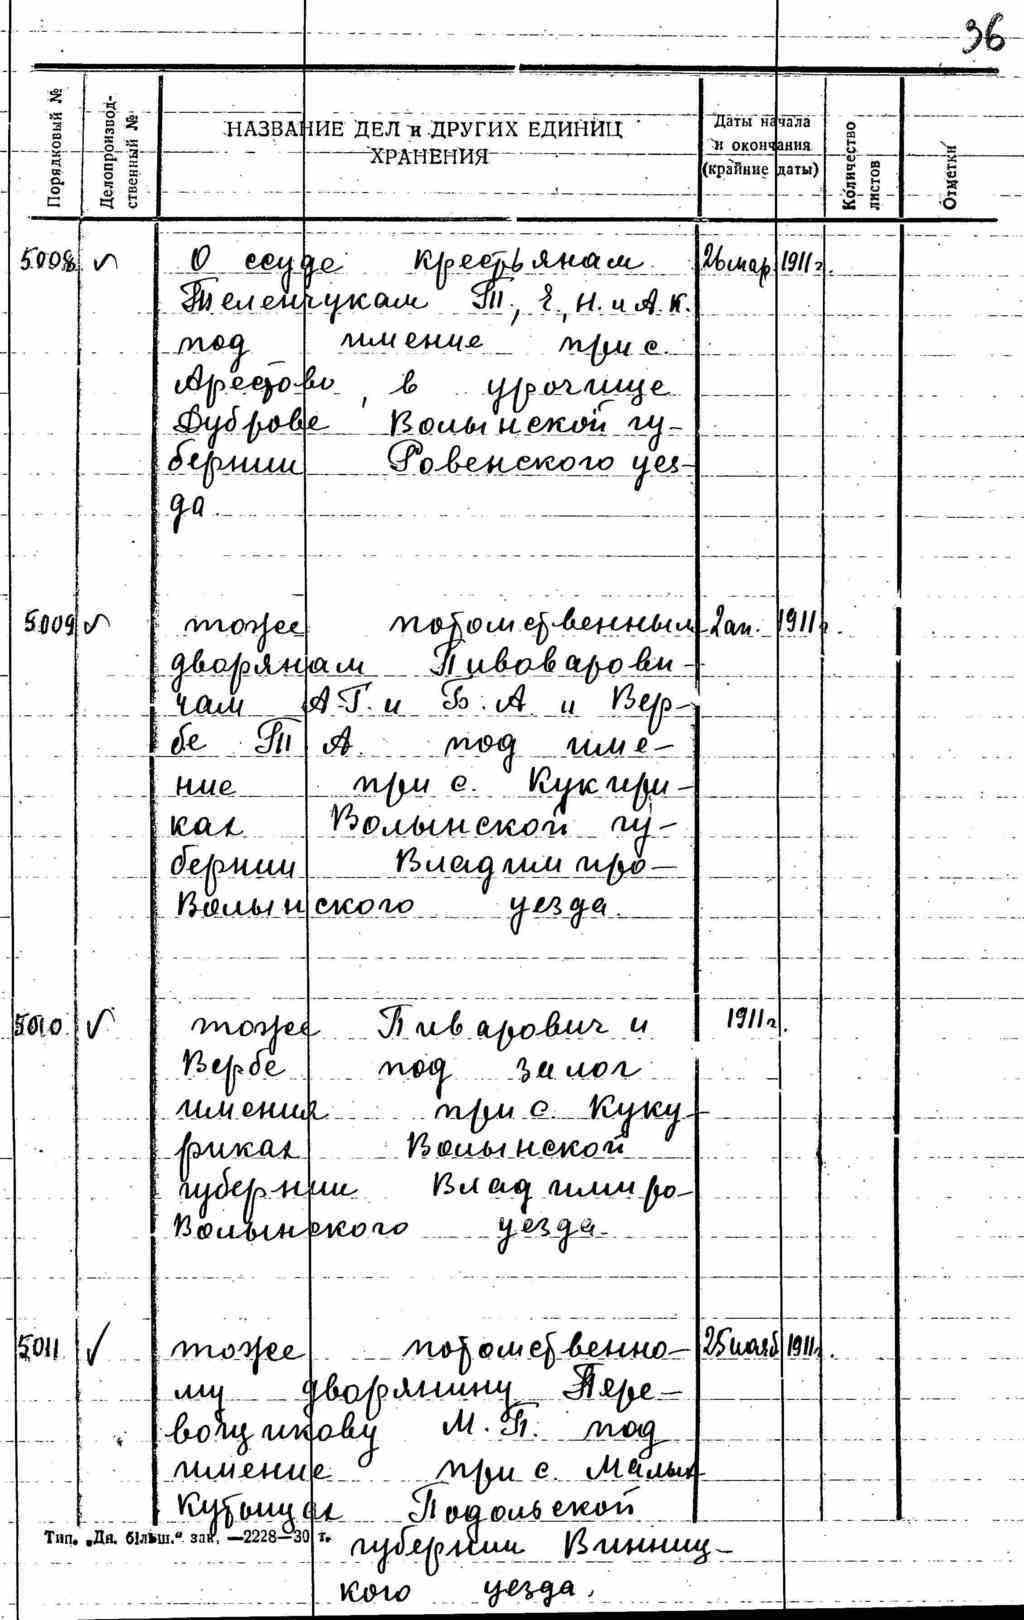 36
Порядковый №
Делопроизвод-
ственный №
НАЗВАНИЕ ДЕЛ и ДРУГИХ ЕДИНИЦ
ХРАНЕНИЯ
Даты начала
и окончания
(крайние даты)
Количество
листов
Отметки
5008 О ссуде крестьянам 26 мар. 1911 г.
Теленчукам Т., Е., Н. и А. К.
под имение при с.
Арестово, в урочище
Дуброве Волынской гу-
бернии Ровенского уез-
да.
5009 тоже потомственным 2 ап. 1911 г.
дворянам Пивоварови-
чам А. Г. и Б. А. и Вер-
бе Т А. под име-
ние при с. Кукури-
ках Волынской гу-
бернии Владимиро-
Волынского уезда.
5010 тоже Пиварович и 1911 г.
Вербе под залог
имения при с. Куку-
риках Волынской
губернии Владимиро-
Волынского уезда.
5011 тоже потомственно- 25 нояб 1911 г.
му дворянину Пере-
вощикову М. П. под
имение при с. Малых
Кутыщах Подольской
Тип. „Дн. більш." зак. —2228—30 г.
губернии Винниц-
кого уезда.